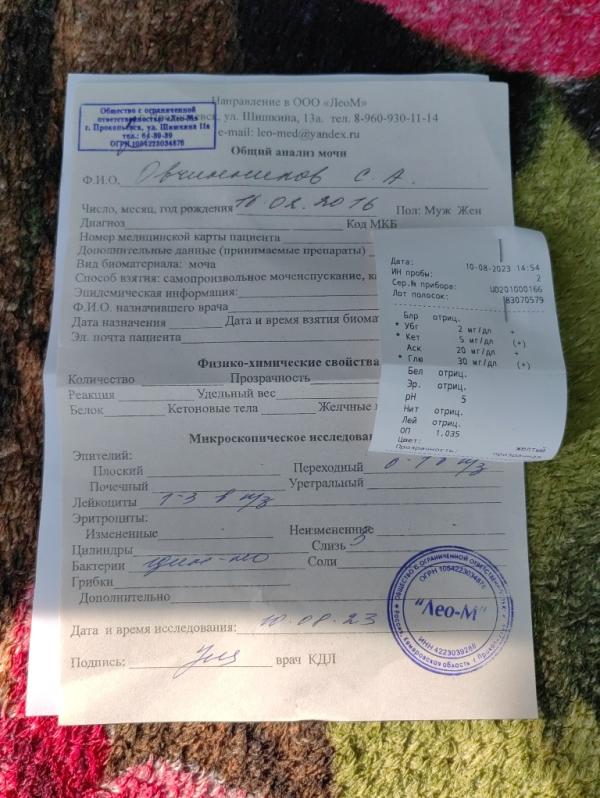 Направление в ООО «ЛеоМ»
Общество с ограниченной
ответственностью «Лео-М»
г. Прокопьевск, ул. Шишкина 11а
тел.: 64-89-89
ОГРН 1054223034876
ул. Шишкина, 13а. тел. 8-960-930-11-14
e-mail: leo-med@yandex.ru
Общий анализ мочи
Ф.И.О. Овчинников С. А.
Число, месяц, год рождения 10 02.2016 Пол: Муж Жен
Диагноз Код МКБ
Номер медицинской карты пациента
Дополнительные данные (принимаемые препараты)
Вид биоматериала: моча
Способ взятия: самопроизвольное мочеиспускание,
Эпидемическая информация:
Ф.И.О. назначившего врача
Дата назначения Дата и время взятия
Эл. почта пациента
Физико-химические свойства
Количество Прозрачность
Реакция Удельный вес
Белок Кетоновые тела Желчные
Дата: 10-08-2023 14:54
ИН пробы: 2
Сер.№ прибора: U0201000166
Лот полосок: 83070579
Блр отриц.
* Убг 2 мг/дл +
* Кет 5 мг/дл (+)
Аск 20 мг/дл +
* Глю 30 мг/дл (+)
Бел отриц.
Эр. отриц.
pH 5
Нит отриц.
Лей отриц.
ОП 1.035
Цвет: желтый
Прозрачность: прозрачная
Микроскопическое исследование
Эпителий:
Плоский Переходный 0-1 в п/з
Почечный Уретральный
Лейкоциты 1-3 в п/з
Эритроциты:
Измененные Неизмененные
Цилиндры Слизь
Бактерии Соли
Грибки
Дополнительно
Дата и время исследования: 10.08.23
Подпись: врач КДЛ
ОБЩЕСТВО С ОГРАНИЧЕННОЙ
ОГРН 1054223034876
"Лео-М"
ИНН 4223039288
Россия, Кемеровская область, г.